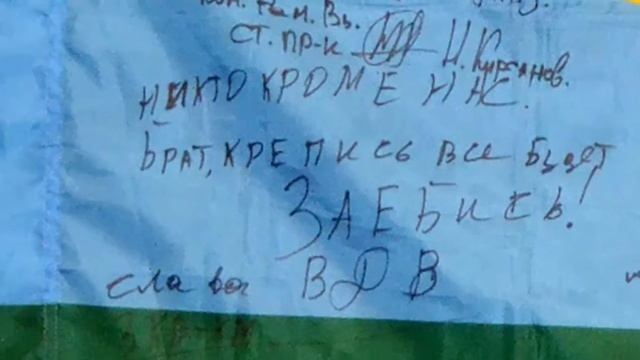 СТ. ПР-К И. Кирсанов.
НИКТО КРОМЕ НАС.
БРАТ, КРЕПИСЬ ВСЕ БУДЕТ
ЗАЕБИСЬ!
слава ВДВ